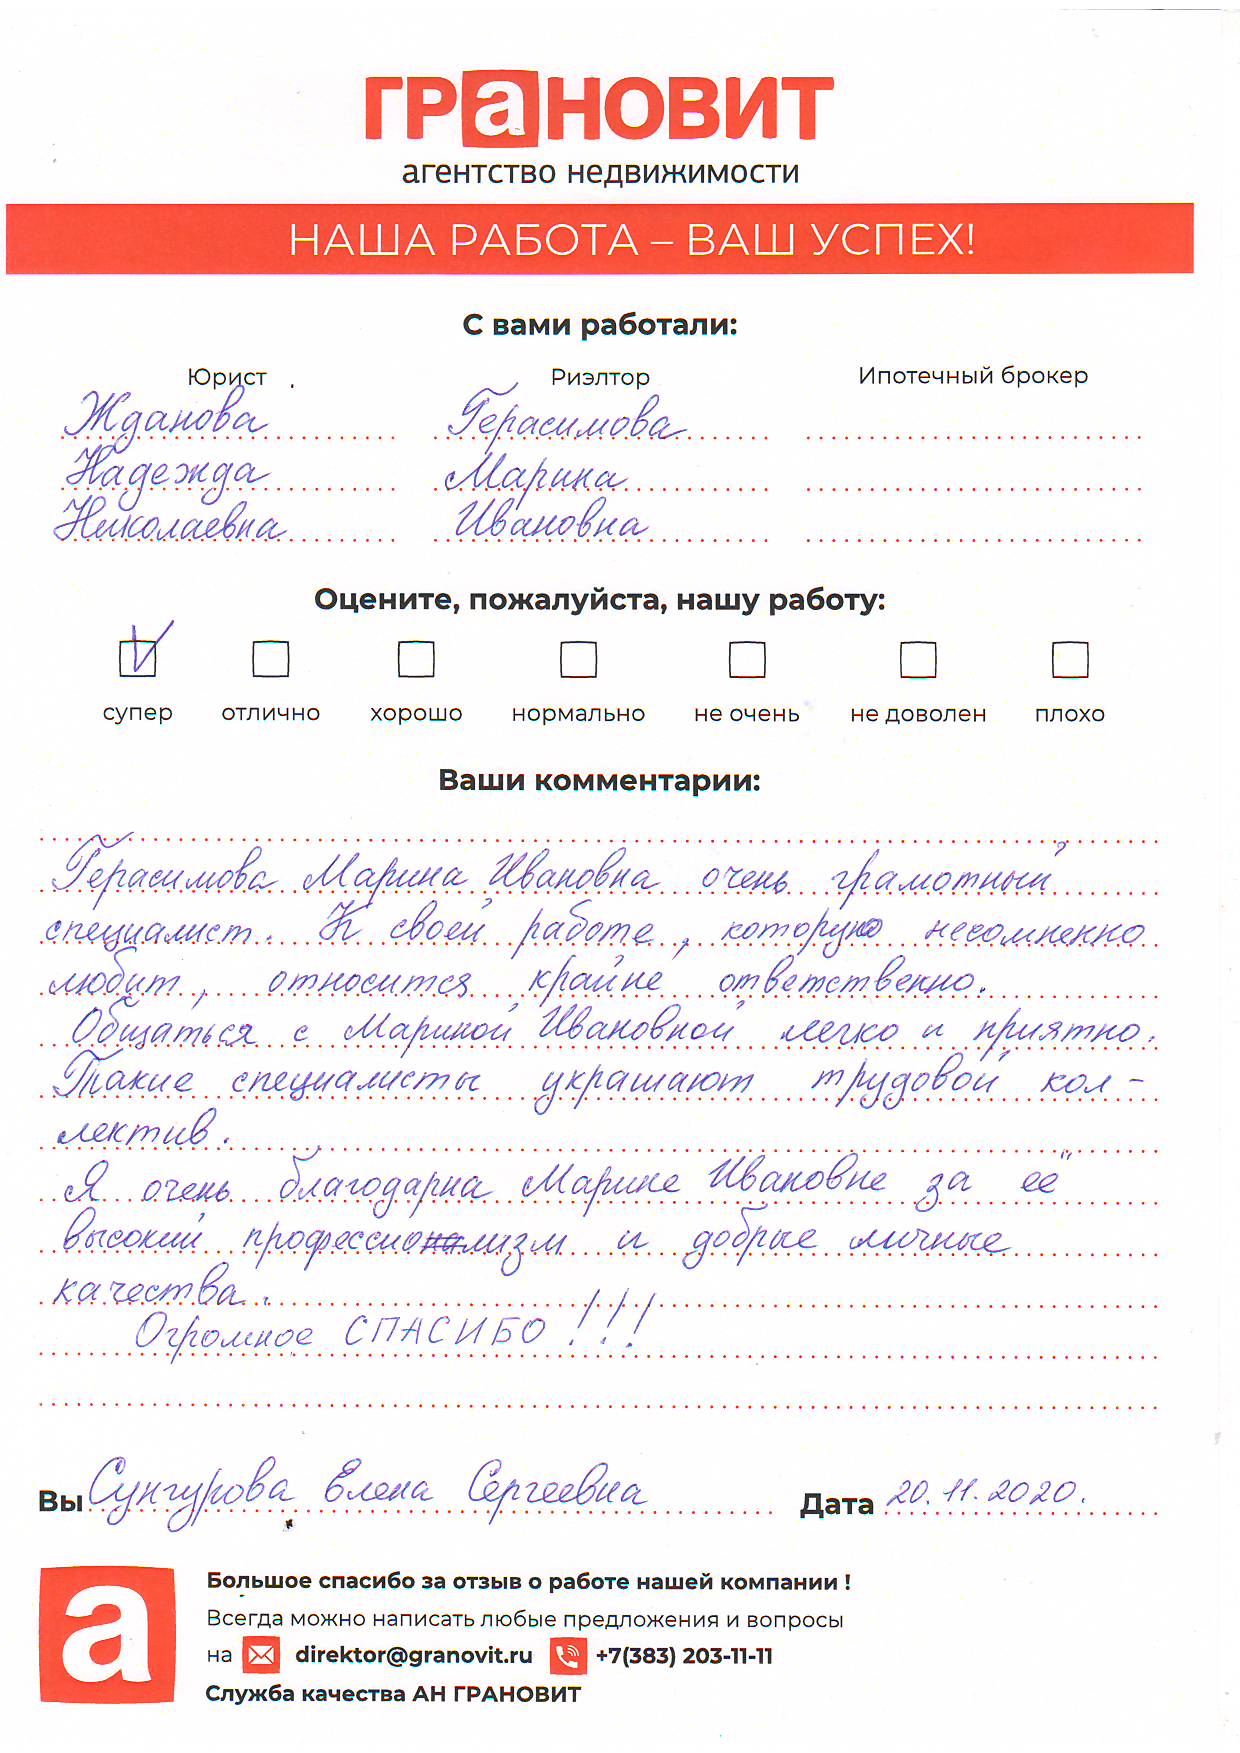 ГРаНОВИТ
агентство недвижимости
НАША РАБОТА – ВАШ УСПЕХ!
С вами работали:
Юрист Риэлтор Ипотечный брокер
Жданова Герасимова
Надежда Марина
Николаевна Ивановна
Оцените, пожалуйста, нашу работу:
супер отлично хорошо нормально не очень не доволен плохо
Ваши комментарии:
Герасимова Марина Ивановна очень грамотный
специалист. К своей работе, которую несомненно
любит, относится крайне ответственно.
Общаться с Мариной Ивановной легко и приятно.
Такие специалисты украшают трудовой кол-
лектив.
Я очень благодарна Марине Ивановне за её
высокий профессионализм и добрые личные
качества.
Огромное СПАСИБО!!!
Вы Сунгурова Елена Сергеевна Дата 20.11.2020.
а
Большое спасибо за отзыв о работе нашей компании !
Всегда можно написать любые предложения и вопросы
на direktor@granovit.ru +7(383) 203-11-11
Служба качества АН ГРАНОВИТ